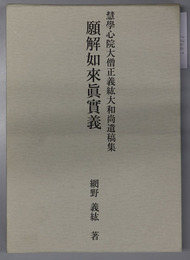 慧學心院大僧正義紘大和尚遺稿集
願解如來眞實義
網野義紘 著